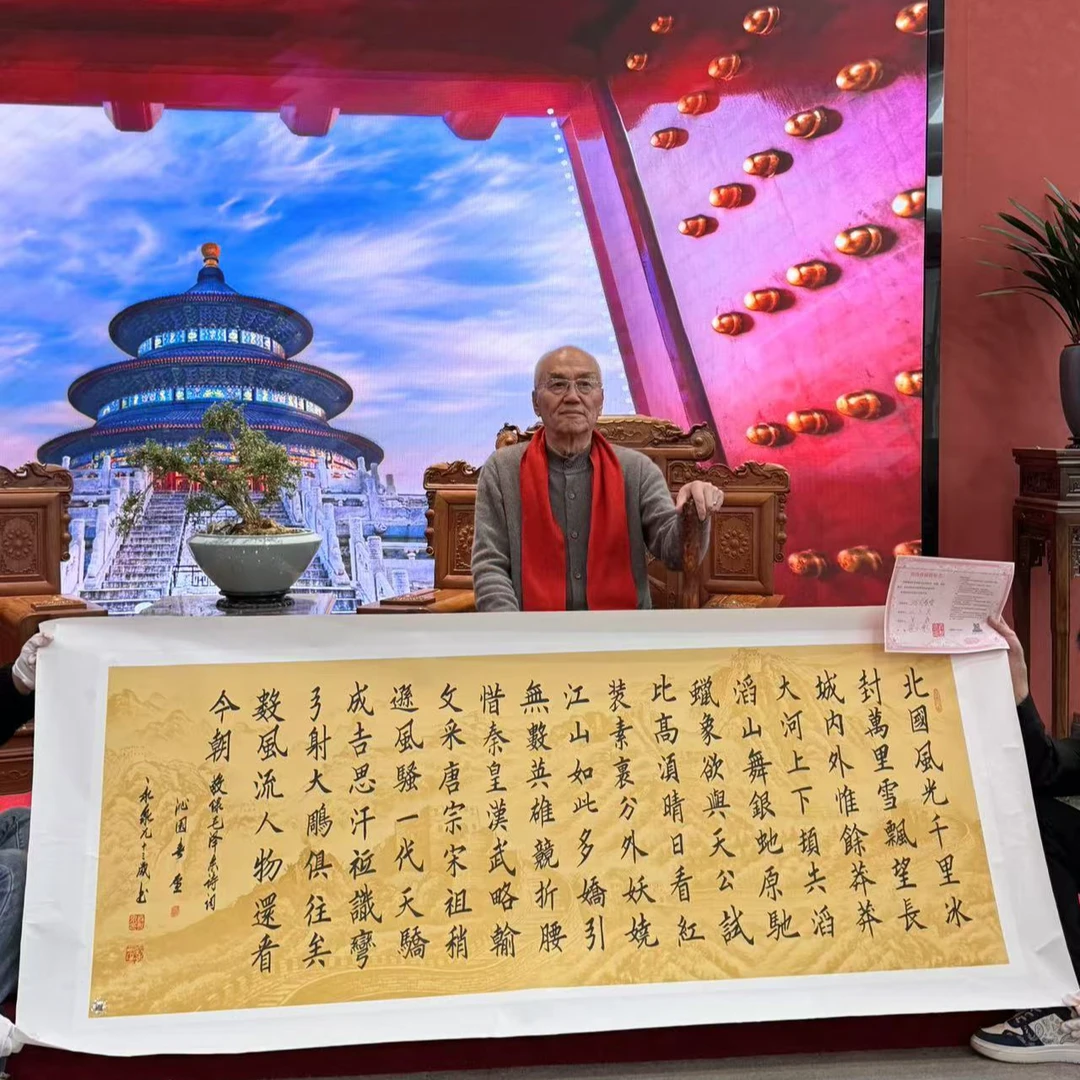 北國風光千里冰
封萬里雪飄望長
城内外惟餘莽莽
大河上下頓失滔
滔山舞銀虵原馳
蠟象欲與天公試
比高須晴日看紅
装素裹分外妖嬈
江山如此多嬌引
無數英雄競折腰
惜秦皇漢武略輸
文采唐宗宋祖稍
遜風騷一代天驕
成吉思汗祗識彎
弓射大鵰俱往矣
數風流人物還看
今朝
敬録毛澤東詩詞
沁園春雪
九十三歲書